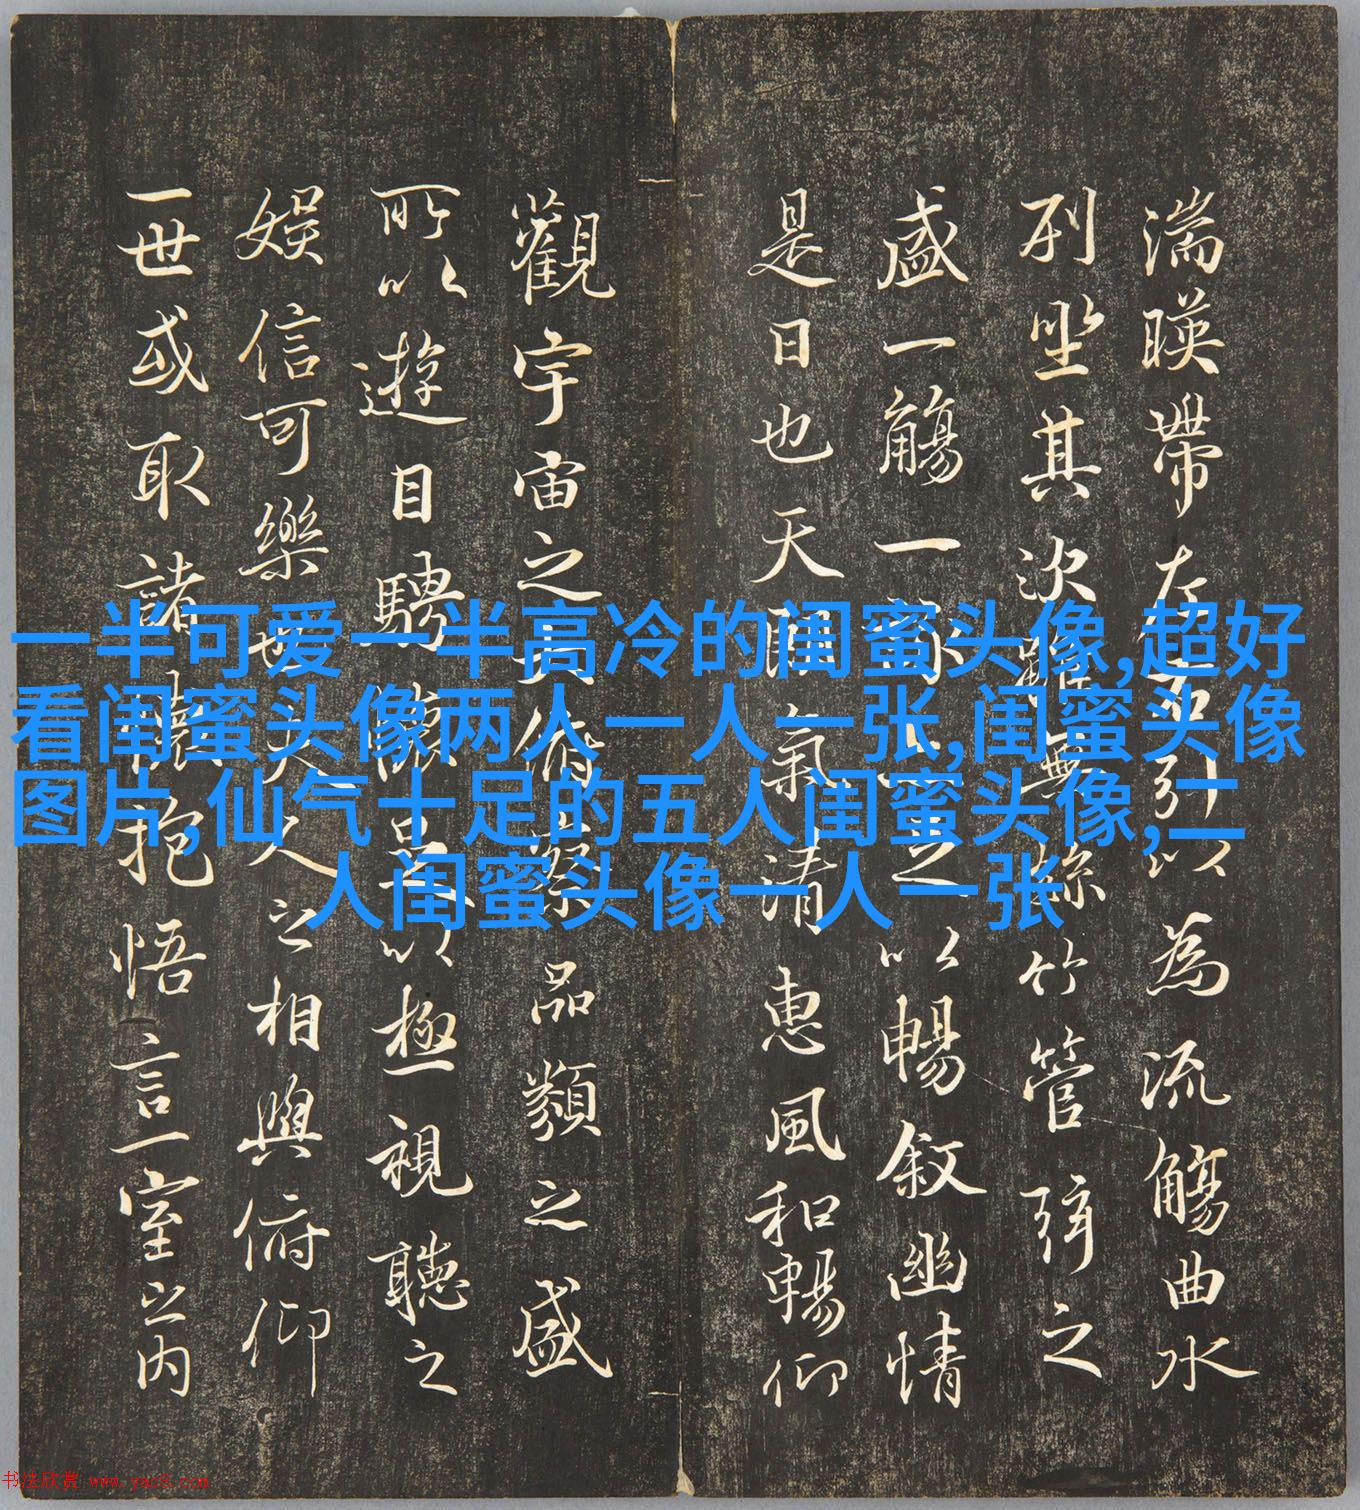 湍暎帶左右引以為流觴曲水
列坐其次雖無絲竹管弦之
盛一觴一詠以暢敘幽情
是日也天朗氣清惠風和暢仰
觀宇宙之大俯察品類之盛
所以遊目騁懷足以極視聽之
娛信可樂也夫人之相與俯仰
一世或取諸懷抱悟言一室之內
一半可爱一半高冷的闺蜜头像,超好
看闺蜜头像两人一人一张,闺蜜头像
图片,仙气十足的五人闺蜜头像,二
人闺蜜头像一人一张
书法欣赏 www.yac8.com